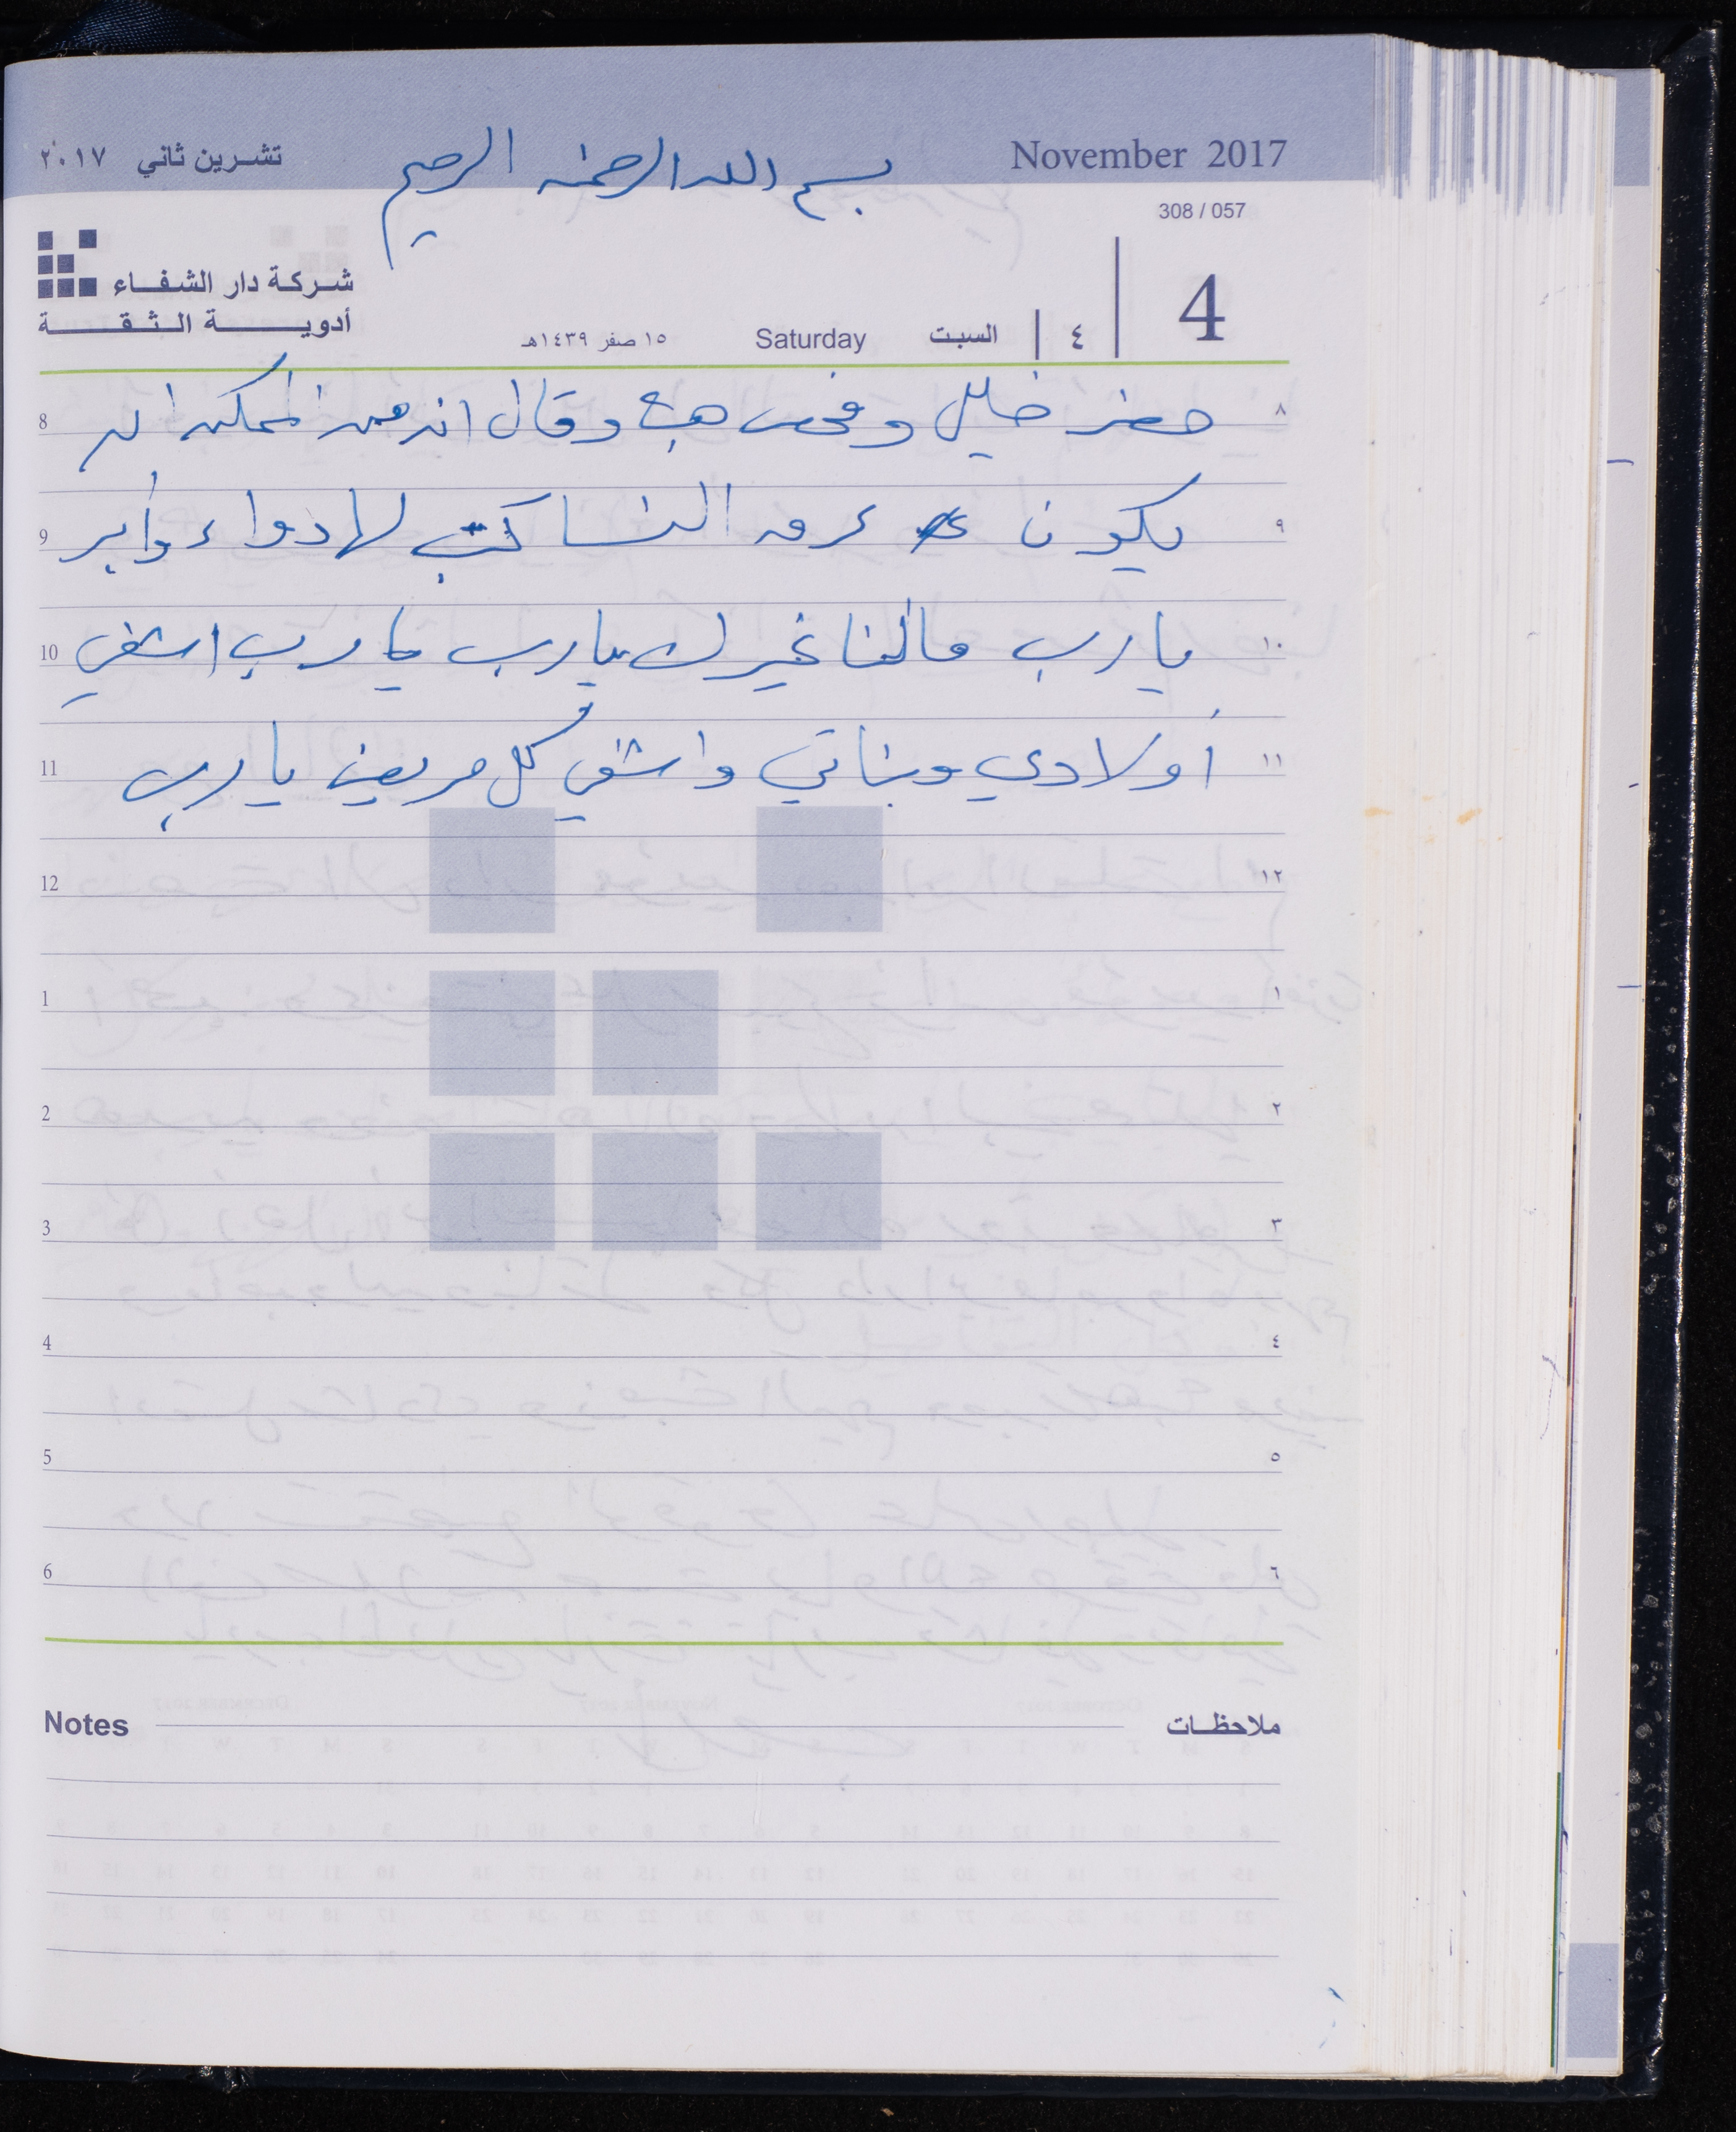 November 2017
تشرين ثاني ٢٠١٧
بسم الله الرحمن الرحيم
308 / 057
شركة دار الشفاء
أدوية الثقة
4
٤
السبت
Saturday
١٥ صفر ١٤٣٩هـ
8 ٨
حضر خليل وفحص هبة وقال انه من الممكن ان
9 ٩
يكون عرق النسا كتب لها دواء وأبر
10 ١٠
يا رب مالنا غيرك يارب يا رب اشفي
11 ١١
أولادي وبناتي واشفي كل مريض يا رب
12 ١٢
1 ١
2 ٢
3 ٣
4 ٤
5 ٥
6 ٦
Notes ملاحظات